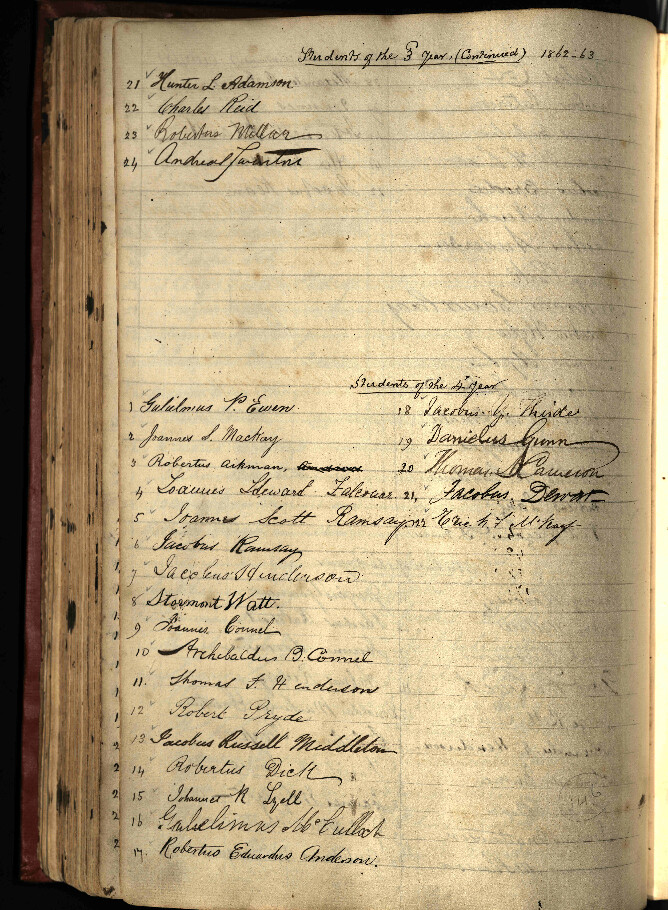 Students of the 3d Year, (Continued) 1862-63
21 Hunter L. Adamson
22 Charles Reid
23 Robertus Millar
24 Andreas
Students of the 4th Year
1 Gulielmus P. Ewen
2 Joannes S. Mackay
3 Robertus Aikman,
4 Joannes Edward Falconar
5 Joannes Scott Ramsay
6 Jacobus Ramsay
7 Jacobus Henderson
8 Stormont Watt.
9 Joannes Connel
10 Archibaldus B. Connel
11. Thomas F. Henderson
12 Robert Pryde
13 Jacobus Russell Middleton
14 Robertus Dick
15 Johannes R Lyell
16 Gulielmus McCulloch
17. Robertus Eduardus Anderson.
18 Jacobus G. Thirde
19 Danielus Gunn
20 Thomas Cameron
21, Jacobus Dewar
22 McKay